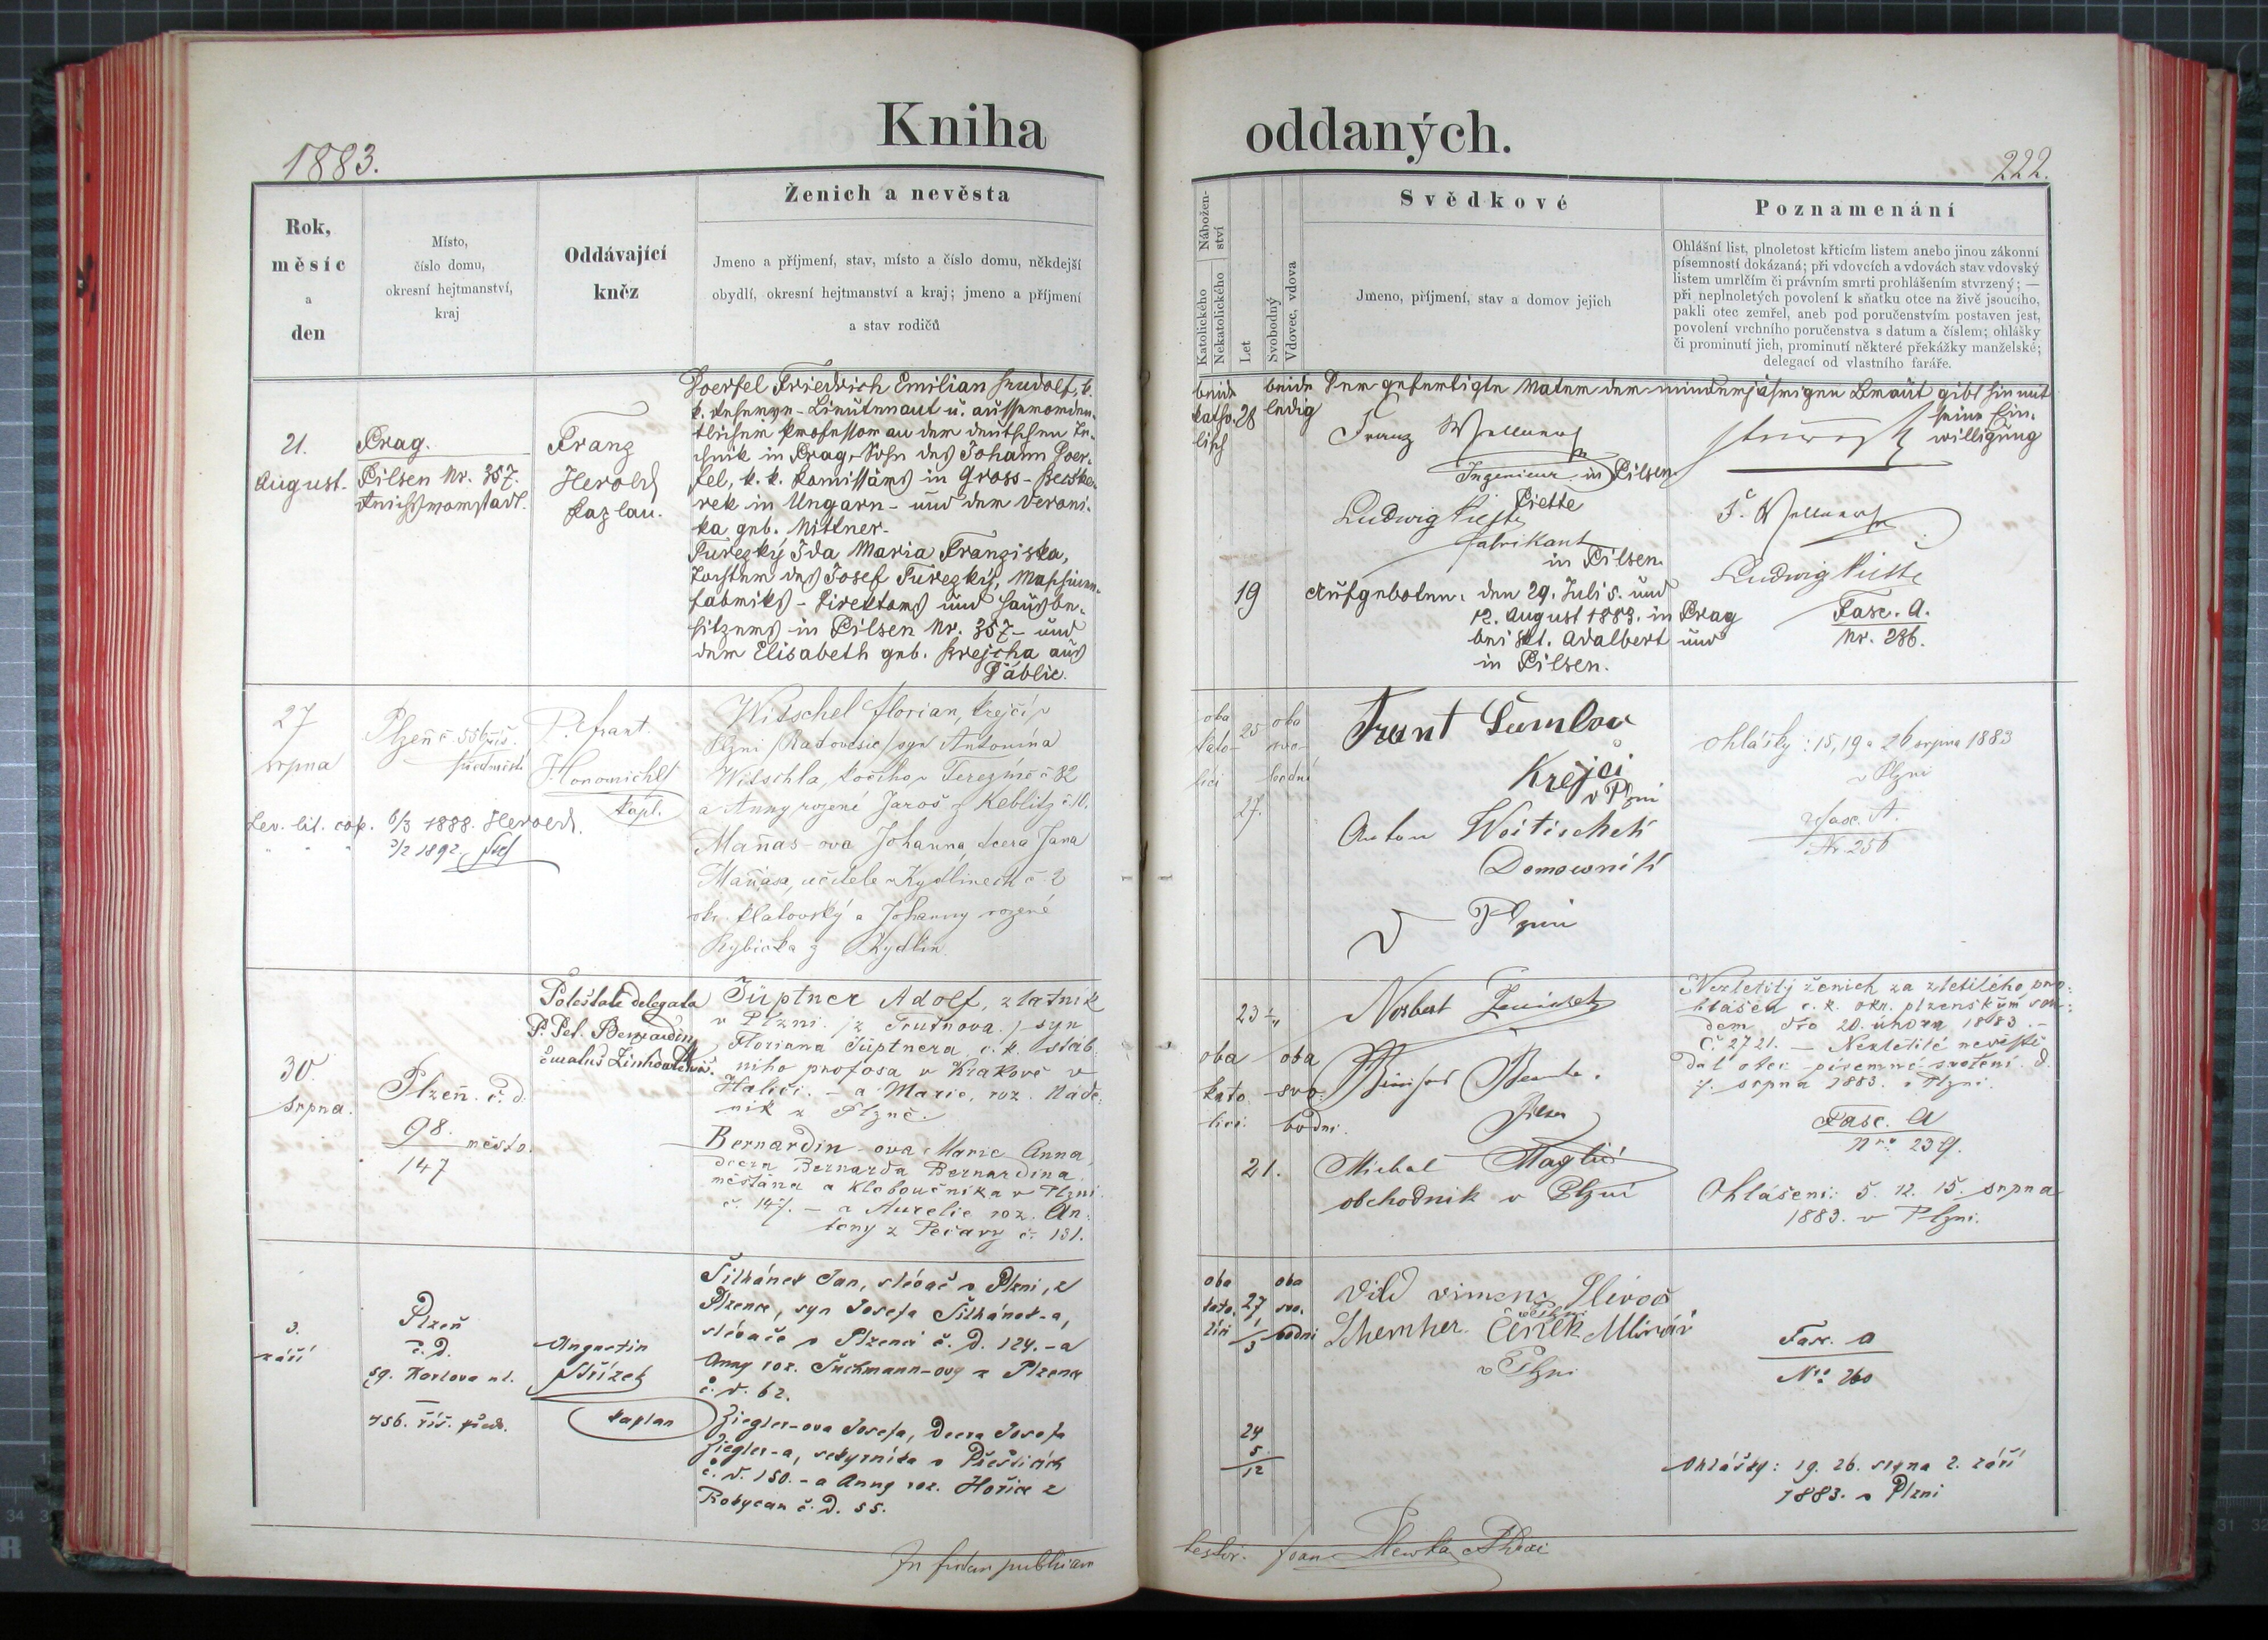 Kniha oddaných.
1883.
222.
Rok,
měsíc
a
den
Místo,
číslo domu,
okresní hejtmanství,
kraj
Oddávající
kněz
Ženich a nevěsta
Jmeno a příjmení, stav, místo a číslo domu, někdejší
obydlí, okresní hejtmanství a kraj; jmeno a příjmení
a stav rodičů
Nábožen-
ství
Katolického
Nekatolického
Let
Svobodný
Vdovec, vdova
Svědkové
Jmeno, příjmení, stav a domov jejich
Poznamenání
Ohlášní list, plnoletost křticím listem anebo jinou zákonní
písemností dokázaná; při vdovcích a vdovách stav vdovský
listem umrlčím či právním smrti prohlášením stvrzený; —
při neplnoletých povolení k sňatku otce na živě jsoucího,
pakli otec zemřel, aneb pod poručenstvím postaven jest,
povolení vrchního poručenstva s datum a číslem; ohlášky
či prominutí jich, prominutí některé překážky manželské;
delegací od vlastního faráře.
21.
August.
Prag.
Pilsen Nr. 357.
Reichsvorstadt.
Franz
Herold
Kaplan.
Doerfel Friedrich Emilian Rudolf, k.
k. Reserve-Lieutenant u. ausserorden-
tlicher Professor an der deutschen Te-
chnik in Prag, Sohn des Johann Doer-
fel, k. k. Komissärs in Gross-Becske-
rek in Ungarn - und der Veroni-
ka geb. Mittner.
Turezký Ida Maria Franziska,
Tochter des Josef Turezký, Maschinen-
fabriks-Direktors und Hausbe-
sitzers in Pilsen Nr. 357 - und
der Elisabeth geb. Krejcha aus
Ďáblic.
beide
katho-
lisch
28
19
beide
ledig
Der gefertigte Vater der minderjährigen Braut gibt hiemit
seine Ein-
willigung
Franz
Ingenieur in Pilsen
Piette
Ludwig Piette
Fabrikant
in Pilsen.
Ludwig Piette
Aufgeboten: den 29. Juli 5. und
12. August 1883. in Prag
bei Skt. Adalbert und
in Pilsen.
Fasc. A.
Nr. 286.
27
srpna
Plzeň č. 556 říš.
předměstí
P. Frant.
Honomichl
kapl.
Lev. lit. cop. 6/3 1888. Herold.
" " " 3/2 1892.
Witschel Florian, krejčí v
Plzni (Radovesic) syn Antonína
Witschla, kočího v Terezíně č 82
a Anny rozené Jaroš z Keblitz č 10.
Maňas-ova Johanna dcera Jana
Maňasa, učitele v Kydlinech č. 2
okr. klatovský a Johanny rozené
Rybička z Kydlin.
oba
kato-
líci
25
27.
oba
svo-
bodni
Frant Šumlov
Krejčí
v Plzni
Anton Woitischek
Domownik
v Plzni
Ohlášky: 15, 19 a 26 srpna 1883
v Plzni
Fasc. A.
Nr. 256
30.
srpna.
Plzeň. č. d.
98.
město.
147
Potestate delegata
P. Pet. Bernardin
Jüptner Adolf, zlatník
v Plzni. (z Trutnova.) syn
Floriana Jüptnera, c. k. štáb-
ního profosa v Krakově v
Haliči. - a Marie, roz. Nade-
nik z Plzně.
Bernardin-ova Marie Anna,
dcera Bernarda Bernardina
měšťana a kloboučníka v Plzni
č. 147. - a Aurelie roz. An-
tony z Pečavy č. 131.
oba
kato
lici.
23
21.
oba
svo-
bodni.
Norbert
Pilsen
Michal
obchodník v Plzni
Nezletilý ženich za zletilého pro-
hlášen c. k. okr. plzenským sou-
dem dto 20. února 1883. -
Č. 2721. - Nezletilé nevěstě
dal otec písemné svolení d.
7. srpna 1883. v Plzni.
Fasc. A
Nro. 239.
Ohlášení: 5. 12. 15. srpna
1883. v Plzni.
3.
září
Plzeň
č. D.
59. Karlova ul.
756. říš. před.
Augustin
Střízek
kaplan
Šilhánek Jan, slévač v Plzni, z
Plzence, syn Josefa Šilhánek-a,
slévače v Plzenci č. D. 124. - a
Anny roz. Suchmann-ovy z Plzence
č. d. 62.
Ziegler-ova Josefa, dcera Josefa
Ziegler-a, sekyrníka v Přešticích
č. d. 150. - a Anny roz. Hořice z
Robycan č. D. 55.
oba
kato.
líci
27
24
5
12
oba
svo.
bodni
v Plzni
Čeněk Mlinář
v Plzni
Fasc. A
Nro. 260
Ohlášky: 19. 26. srpna 2. září
1883. v Plzni